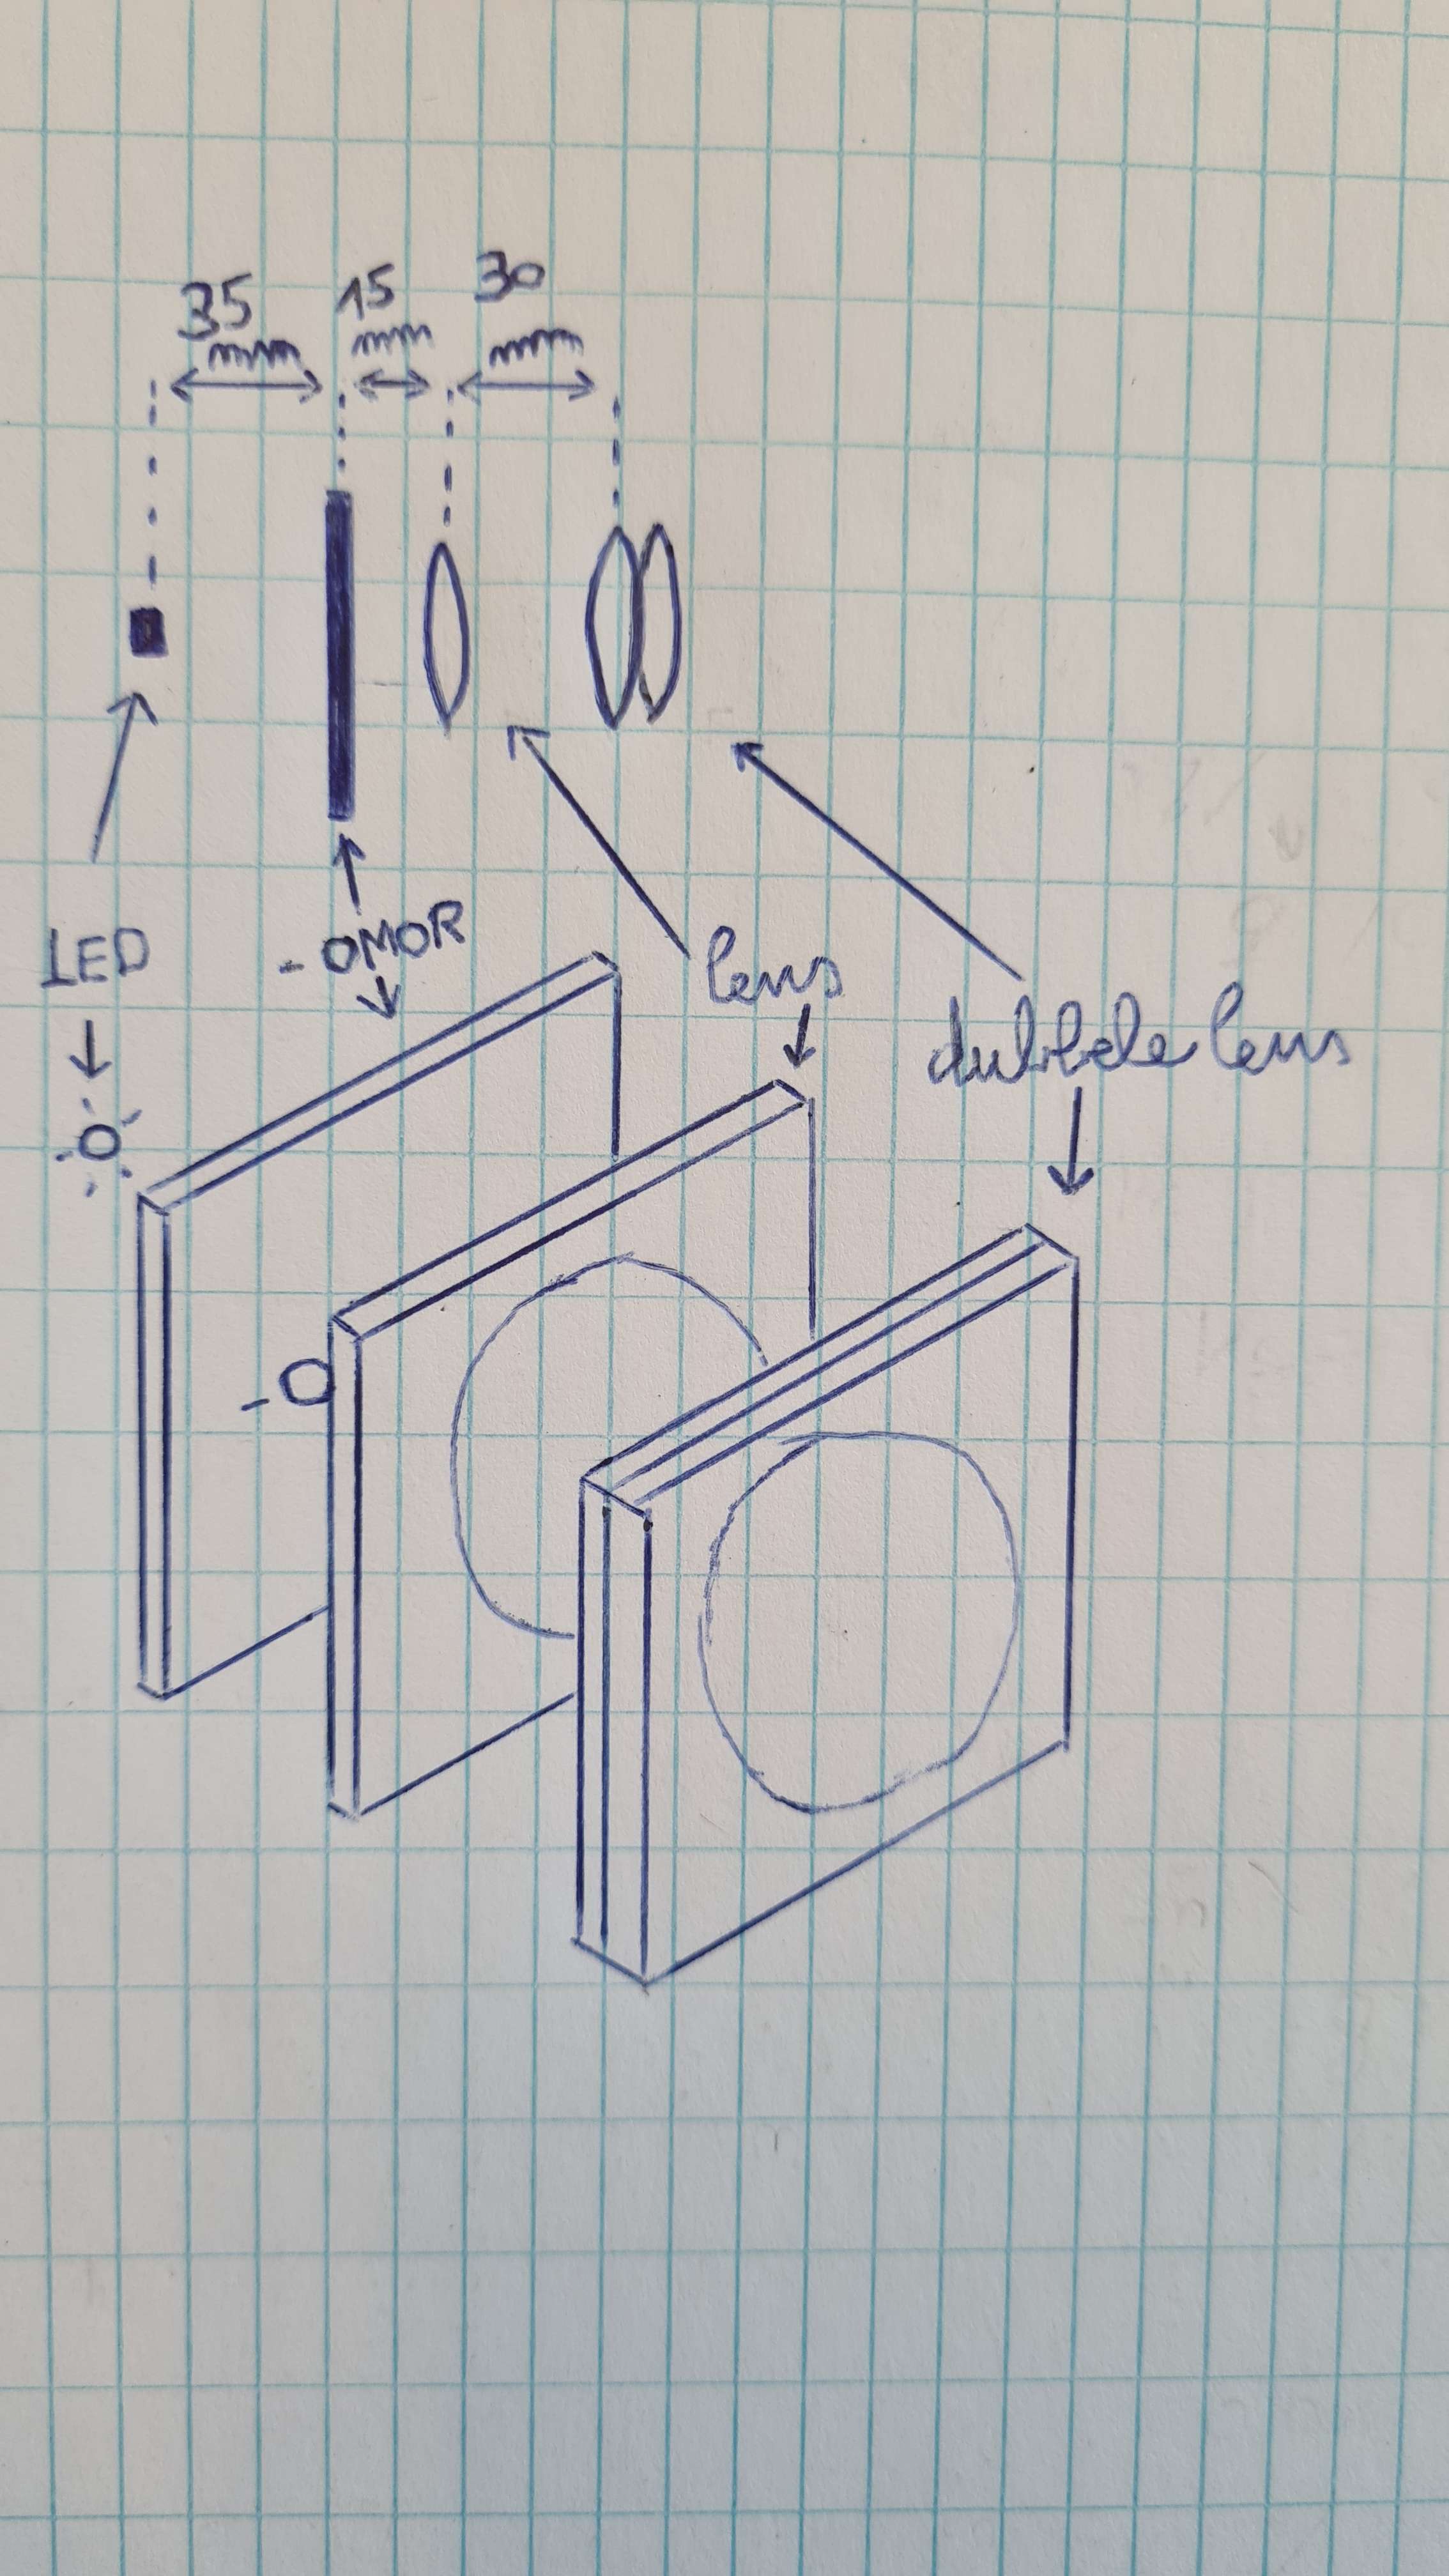 35 mm
15 mm
30 mm
LED
-OMOR
lens
dubbele lens
-O